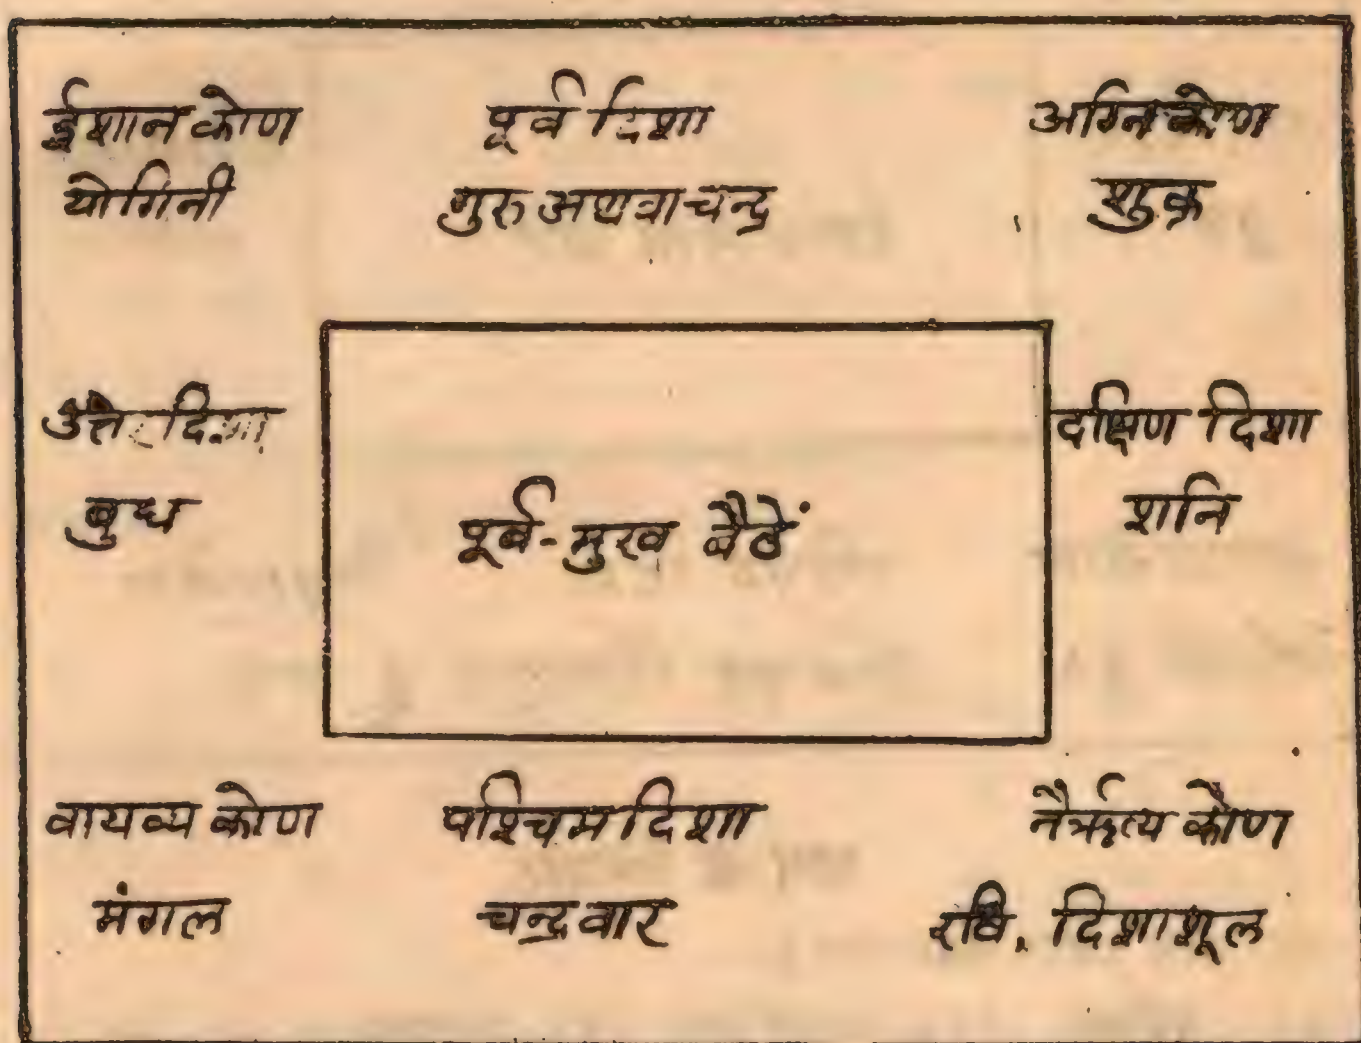 ईशान कोण
योगिनी
पूर्व दिशा
गुरु अथवा चन्द्र
अग्नि कोण
शुक्र
उत्तर दिशा
बुध
पूर्व-मुख बैठें
दक्षिण दिशा
शनि
वायव्य कोण
मंगल
पश्चिम दिशा
चन्द्रवार
नैर्ऋत्य कोण
रवि, दिशाशूल